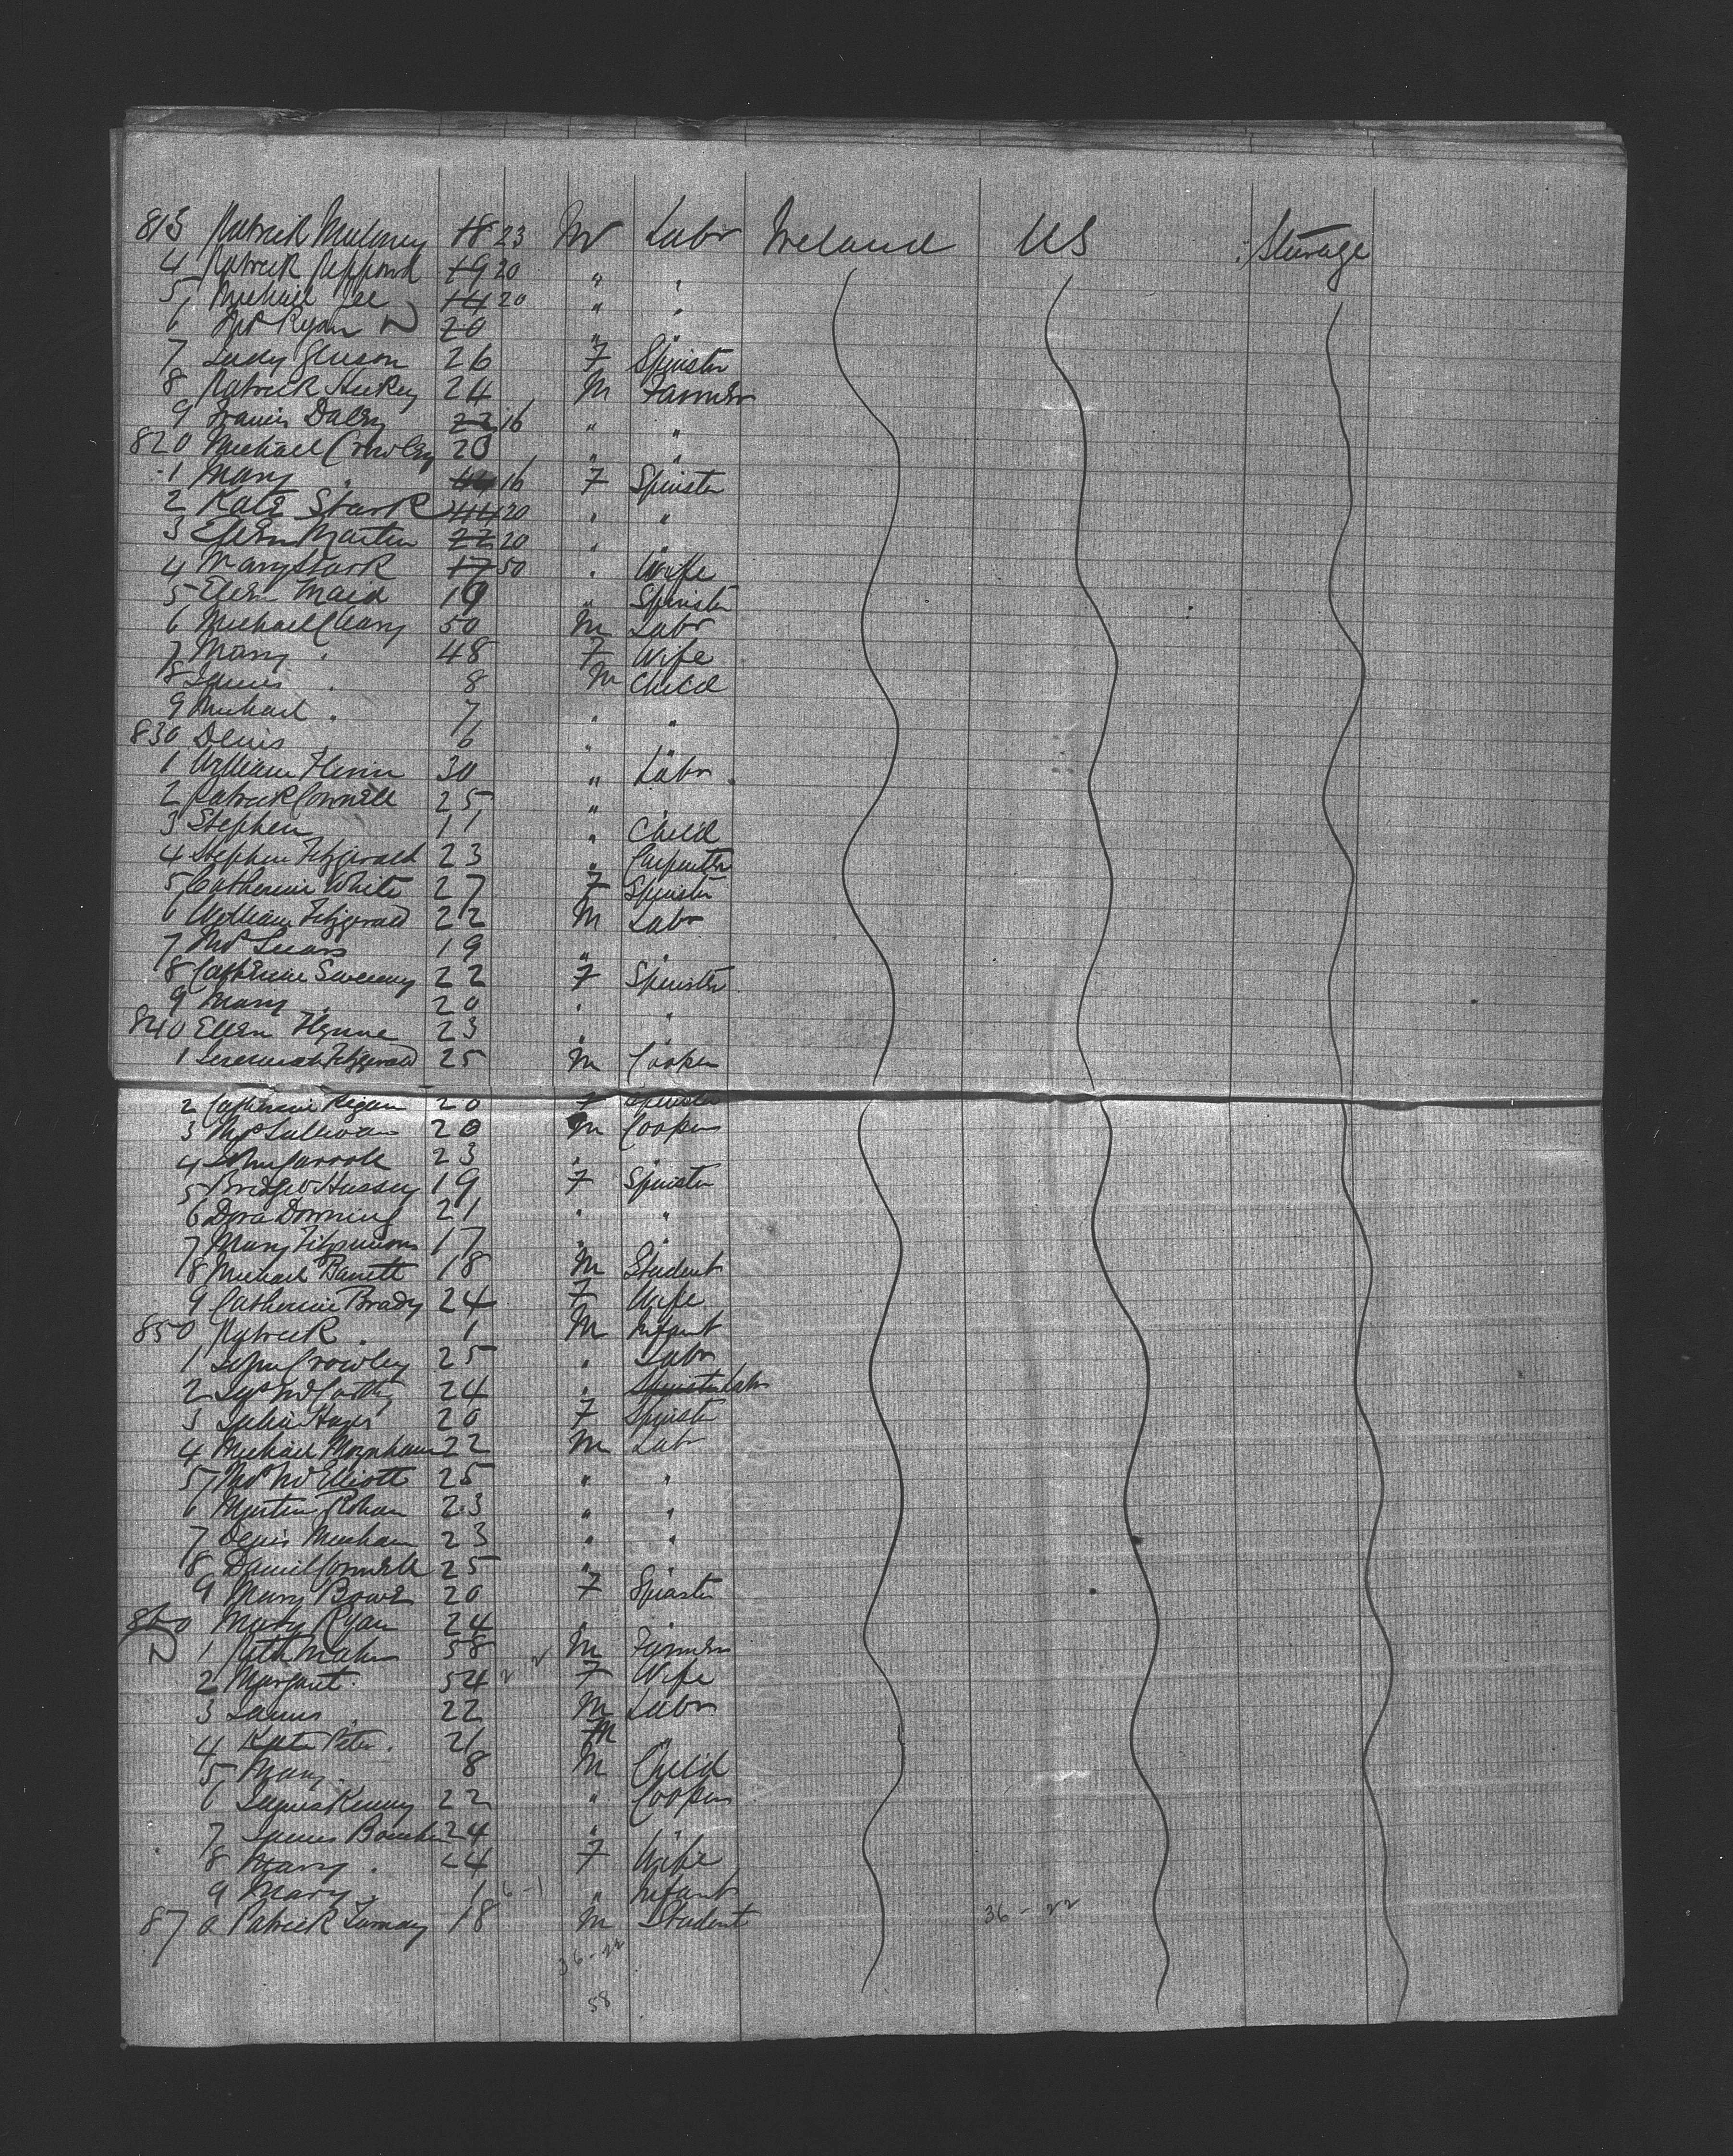 813 Patrick Muloney 18 23 M Labr Ireland US Steerage
4 Patrick 19 20 " "
5 Michael Lee 14 20 " "
6 Ths Ryan 20 " "
7 Judy Gleeson 26 F Spinster
8 Patrick Hickey 24 M Farmer
9 Francis Daley 22 16 " "
820 Michael Crowley 20 " "
1 Mary " 16 F Spinster
2 Kate Stack 44 20 " "
3 Ellen Martin 22 20 " "
4 Mary Stack 17 50 " Wife
5 Ellen Maid 19 " Spinster
6 Michael Cleary 50 M Labr
7 Mary " 48 F Wife
8 James " 8 M Child
9 Michael " 7 " "
830 Denis " 6 " "
1 William 30 " Labr
2 Patrick Connell 25 " "
3 Stephen 11 " Child
4 Stephen Fitzgerald 23 " Carpenter
5 Catherine White 27 F Spinster
6 William Fitzgerald 22 M Labr
7 19 " "
8 Catherine Sweeney 22 F Spinster
9 Mary " 20 " "
840 Ellen Flynne 23 " "
1 Jeremiah Fitzgerald 25 M Cooper
2 Catherine Regan 20 F Spinster
3 Sullivan 20 M Cooper
4 John Carroll 23 " "
5 Bridget Hussey 19 F Spinster
6 Dora Downing 21 " "
7 Mary Fitzsimons 17 " "
8 Michael Barrett 18 M Student
9 Catherine Brady 24 F Wife
850 Patrick " 1 M Infant
1 John Crowley 25 " Labr
2 McCarthy 24 " Spinster Labr
3 Julia Hayes 20 F Spinster
4 Michael Moynham 22 M Labr
5 McElliott 25 " "
6 Martin 23 " "
7 Denis Meehan 23 " "
8 Daniel Connell 25 " "
9 Mary Bowe 20 F Spinster
860 Mary Ryan 24 " "
1 Maher 58 M Farmer
2 Margaret " 54 F Wife
3 James " 22 M Labr
4 Kate Peter " 21 M "
5 Mary " 8 M Child
6 James Kenny 22 " Cooper
7 James 24 " "
8 Mary " 24 F Wife
9 Mary " 1 " Infant
870 Patrick 18 M Student
36 - 22
36 - 22
58